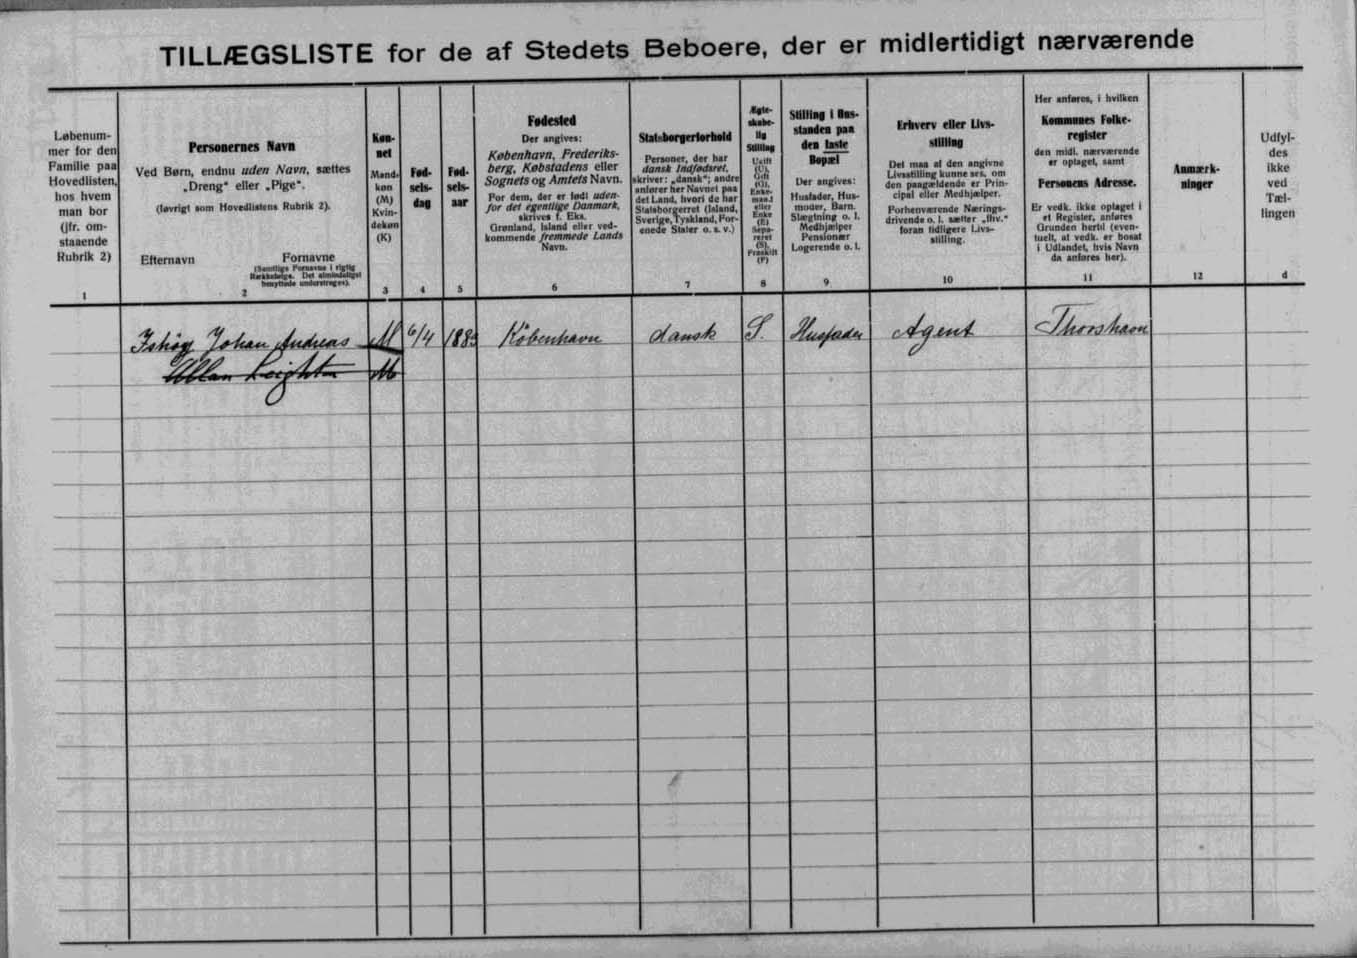 TILLÆGSLISTE for de af Stedets Beboere, der er midlertidigt nærværende
Løbenum-
mer for den
Familie paa
Hovedlisten,
hos hvem
man bor
(jfr. om-
staaende
Rubrik 2)
1
Personernes Navn
Ved Børn, endnu uden Navn, sættes
„Dreng“ eller „Pige“.
(Iøvrigt som Hovedlistens Rubrik 2).
Efternavn Fornavne
(Samtlige Fornavne i rigtig
Rækkefølge. Det almindeligst
benyttede understreges).
2
Køn-
net
Mand-
køn
(M)
Kvin-
dekøn
(K)
3
Fød-
sels-
dag
4
Fød-
sels-
aar
5
Fødested
Der angives:
København, Frederiks-
berg, Købstadens eller
Sognets og Amtets Navn.
For dem, der er født uden-
for det egentlige Danmark,
skrives f. Eks.
Grønland, Island eller ved-
kommende fremmede Lands
Navn.
6
Statsborgerforhold
Personer, der har
dansk Indfødsret,
skriver: „dansk“; andre
anfører her Navnet paa
det Land, hvori de har
Statsborgerret (Island,
Sverige, Tyskland, For-
enede Stater o. s. v.)
7
Ægte-
skabe-
lig
Stilling
Ugift
(U),
Gift
(G),
Enke-
mand
eller
Enke
(E)
Sepa-
reret
(S),
Fraskilt
(F)
8
Stilling i Hus-
standen paa
den faste
Bopæl
Der angives:
Husfader, Hus-
moder, Barn.
Slægtning o. l.
Medhjælper
Pensionær
Logerende o. l.
9
Erhverv eller Livs-
stilling
Det maa af den angivne
Livsstilling kunne ses, om
den paagældende er Prin-
cipal eller Medhjælper.
Forhenværende Nærings-
drivende o. l. sætter „fhv.“
foran tidligere Livs-
stilling.
10
Her anføres, i hvilken
Kommunes Folke-
register
den midl. nærværende
er optaget, samt
Personens Adresse.
Er vedk. ikke optaget i
et Register, anføres
Grunden hertil (even-
tuelt, at vedk. er bosat
i Udlandet, hvis Navn
da anføres her).
11
Anmærk-
ninger
12
Udfyl-
des
ikke
ved
Tæl-
lingen
d
Johan Andreas M 6/4 1885 København dansk S. Husfader Agent Thorshavn
Allan Leighton M